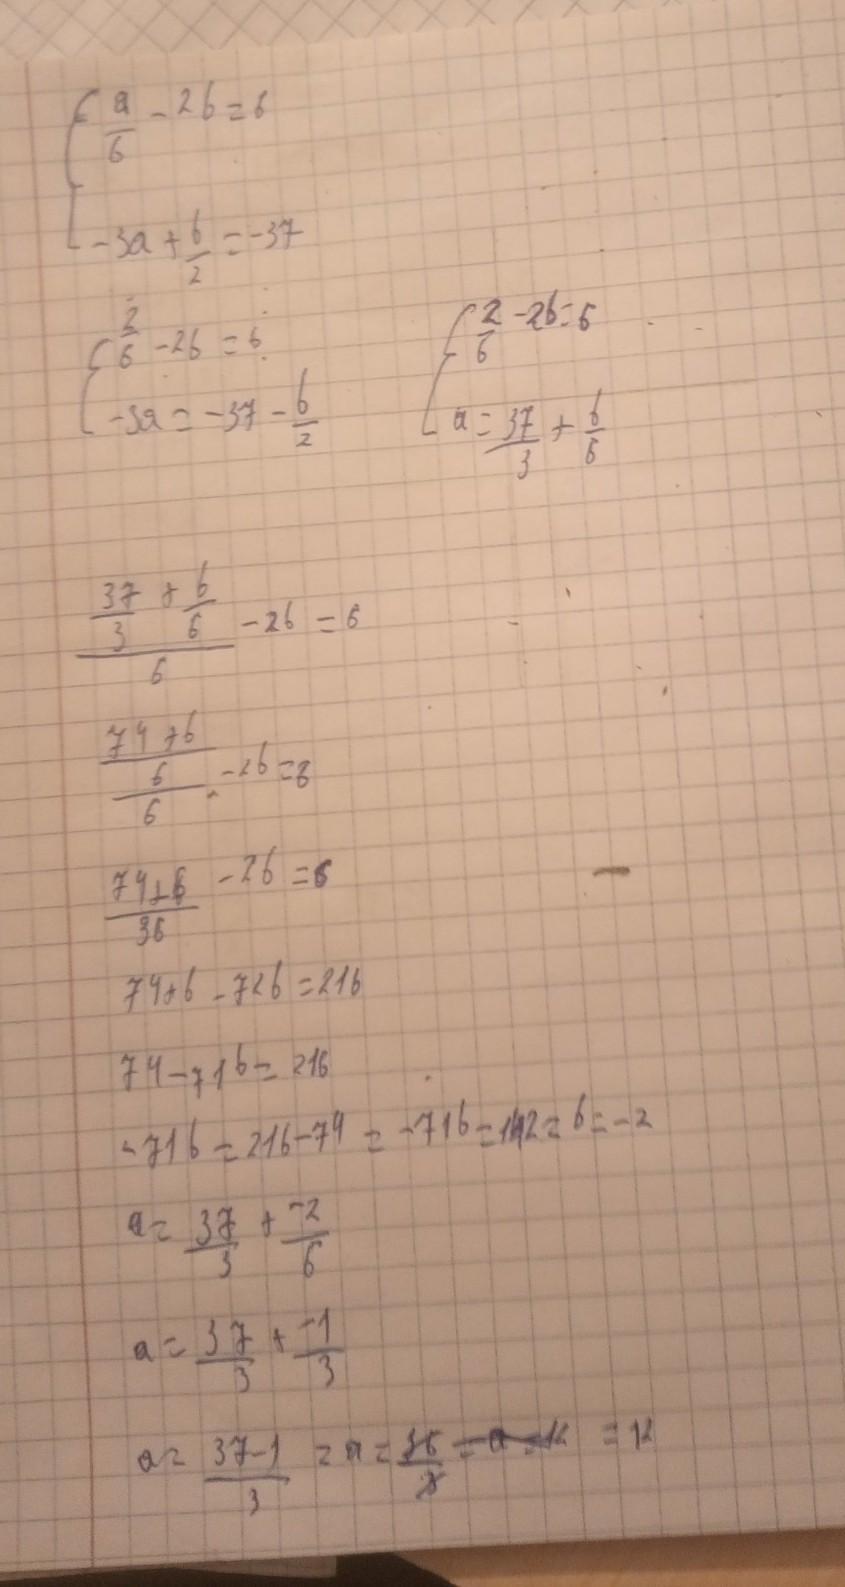 a/6 - 2b = 6
-3a + b/2 = -37
2/6 - 2b = 6
-3a = -37 - b/2
2/6 - 2b = 6
a = 37/3 + b/6
(37/3 + b/6)/6 - 2b = 6
((74+b)/6)/6 - 2b = 6
(74+b)/36 - 2b = 6
74+b - 72b = 216
74 - 71b = 216
-71b = 216-74 = -71b = 142 = b = -2
a = 37/3 + -2/6
a = 37/3 + -1/3
a = (37-1)/3 = a = 36/3 = 12